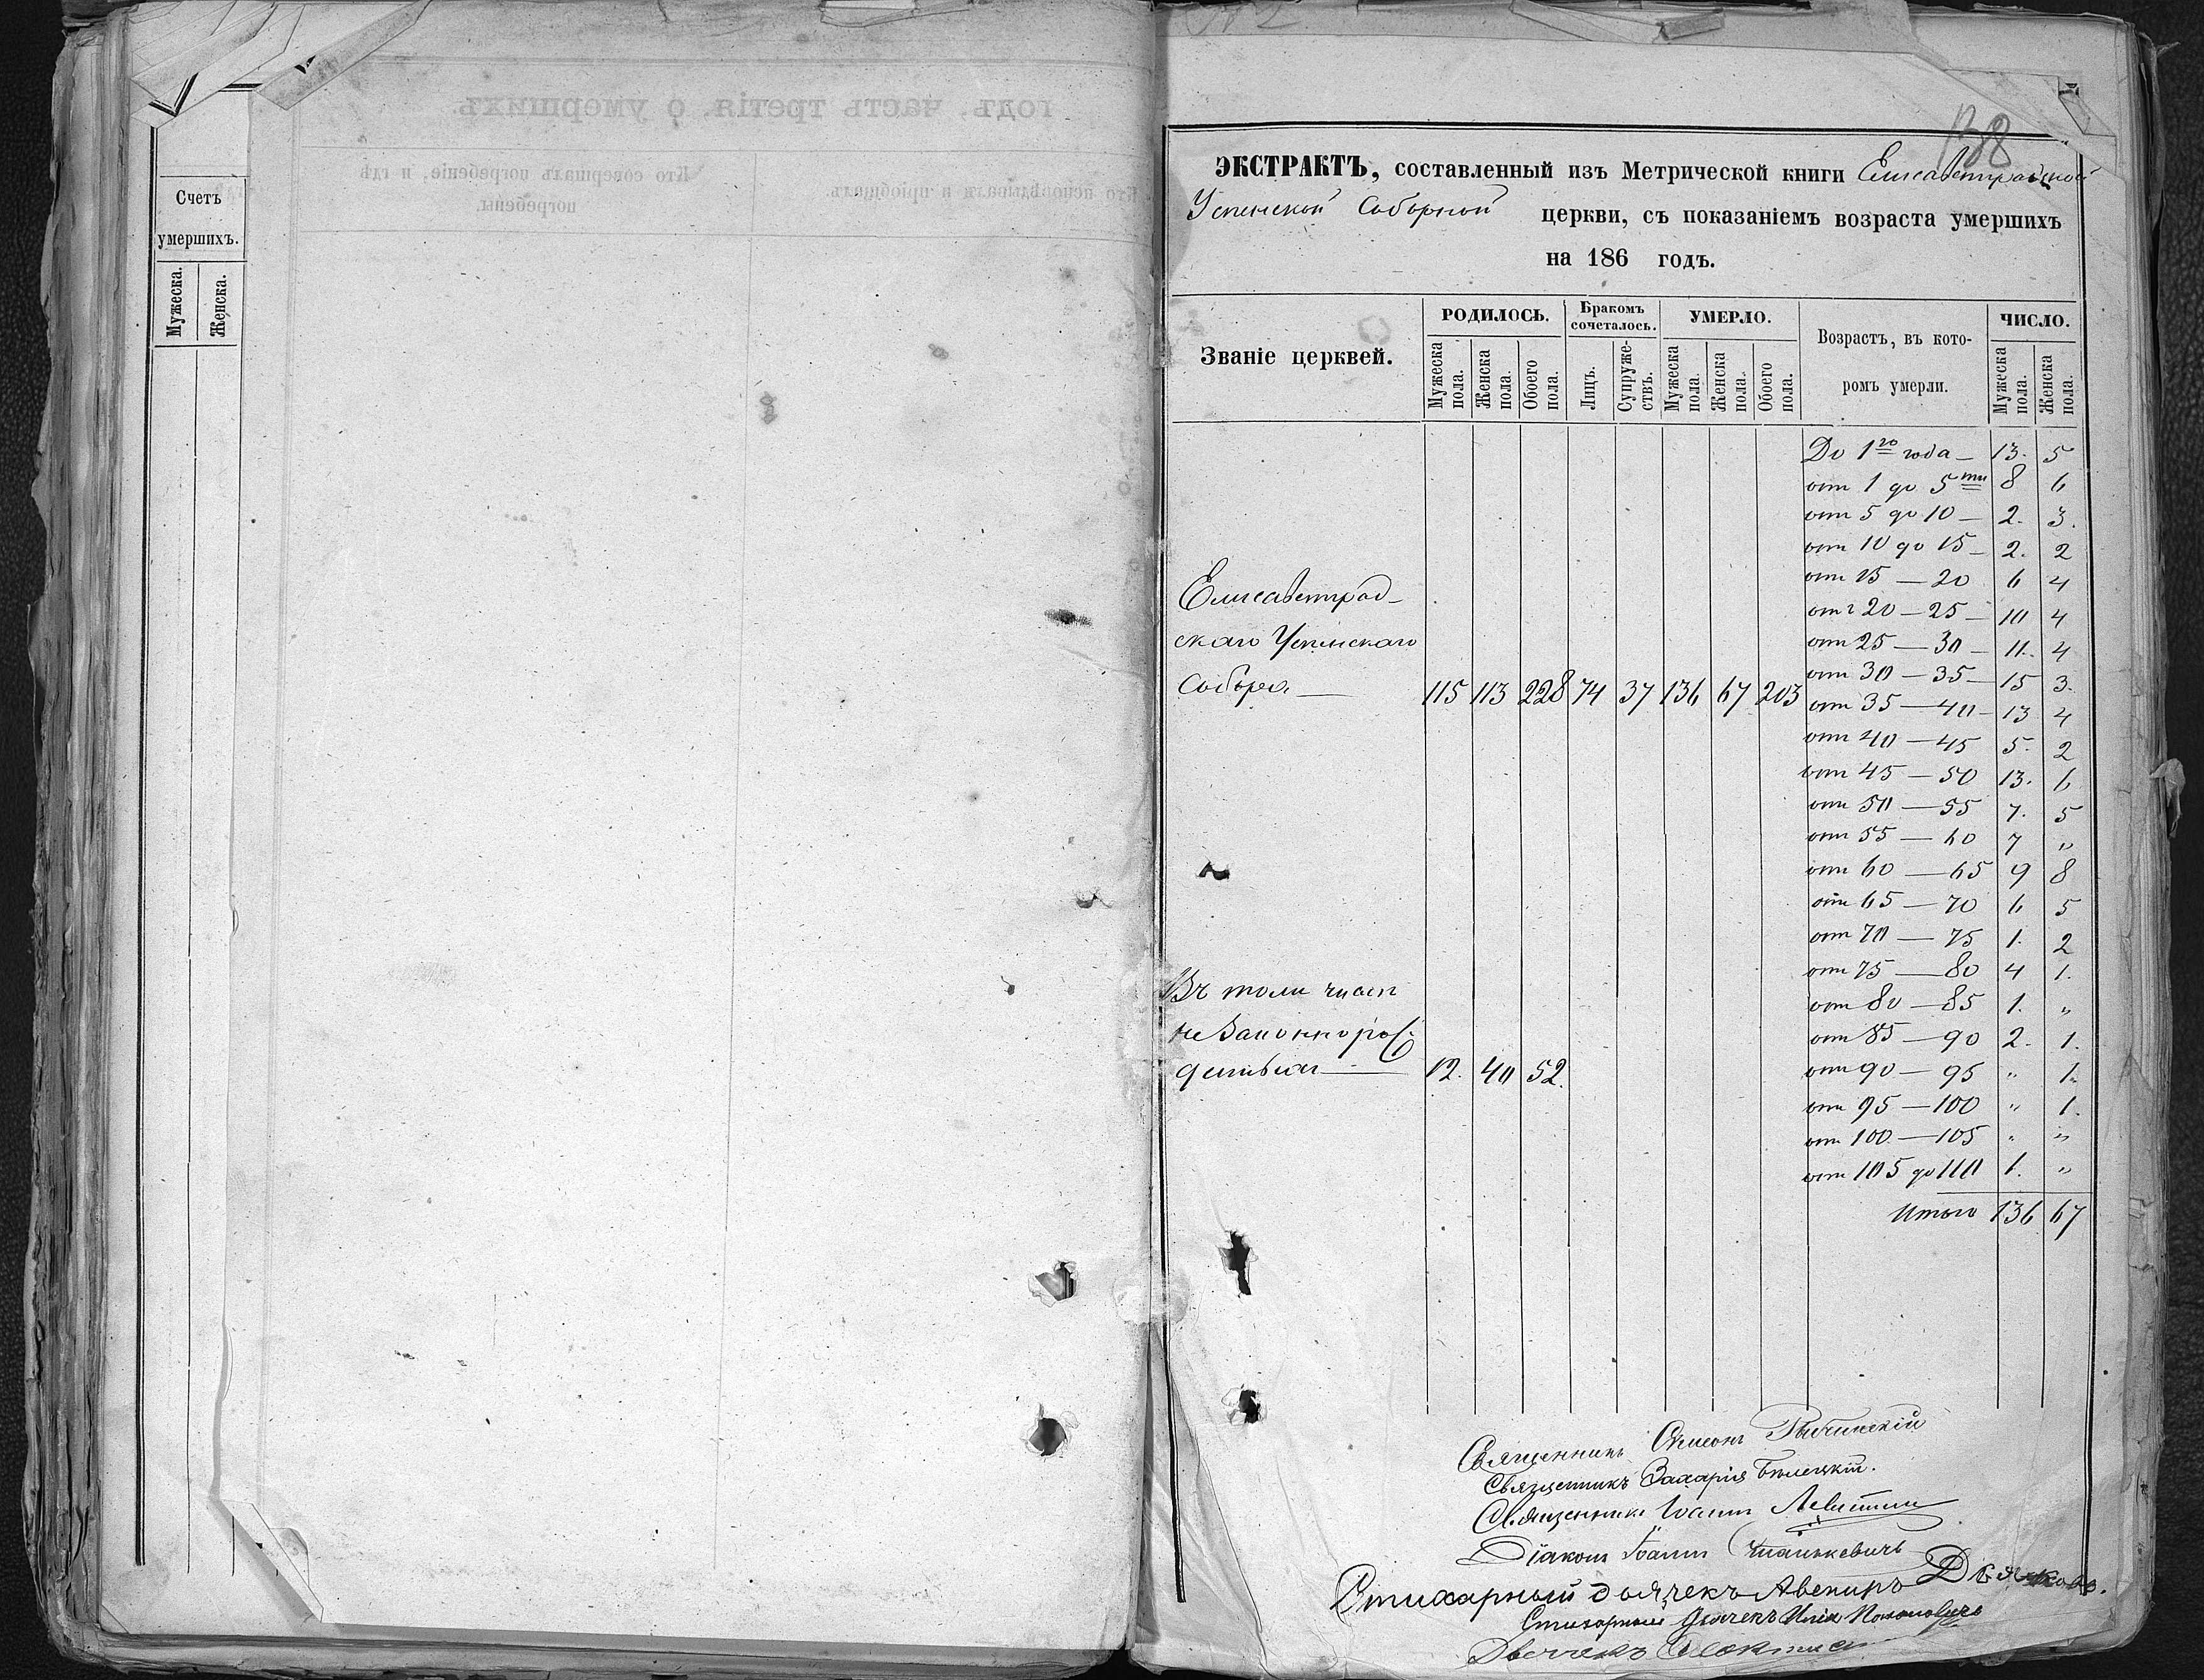 Счетъ
умершихъ.
Мужеска.
Женска.
годъ, часть третія, о умершихъ.
Кто совершалъ погребеніе, и гдѣ
погребены.
Кто исповѣдывалъ и пріобщалъ.
138
ЭКСТРАКТЪ, составленный изъ Метрической книги Елисаветградской
Успенской Соборной церкви, съ показаніемъ возраста умершихъ
на 186 годъ.
Званіе церквей.
РОДИЛОСЬ.
Бракомъ сочеталось.
УМЕРЛО.
Возрастъ, въ кото-
ромъ умерли.
ЧИСЛО.
Мужеска пола.
Женска пола.
Обоего пола.
Лицъ.
Супружествъ.
Мужеска пола.
Женска пола.
Обоего пола.
Мужеска пола.
Женска пола.
До 1го года — 13. 5
от 1 до 5ти 8 6
от 5 до 10 — 2. 3.
от 10 до 15 — 2. 2
от 15 — 20 6 4
от 20 — 25 — 10 4
от 25 — 30 — 11. 4
от 30 — 35 — 15 3.
от 35 — 40 — 13 4
от 40 — 45 5. 2
от 45 — 50 13. 6
от 50 — 55 7. 5
от 55 — 60 7 „
от 60 — 65 9 8
от 65 — 70 6 5
от 70 — 75 1. 2
от 75 — 80 4 1.
от 80 — 85 1. „
от 85 — 90 2. 1.
от 90 — 95 „ 1.
от 95 — 100 „ 1.
от 100 — 105 „ „
от 105 до 110 1. „
Итого 136 67
Елисаветград-
скаго Успенскаго
Собора — 115 113 228 74 37 136 67 203
Въ том числ
незаконнорож
12. 40 52.
Священникъ Симеонъ
Священникъ Захарія Бѣлецкій.
Священникъ Іоаннъ Левитский
Діаконъ Іоаннъ
Стихарный дьячекъ Авениръ Дьяковъ.
Стихарный дьячекъ Илія
Дьячекъ